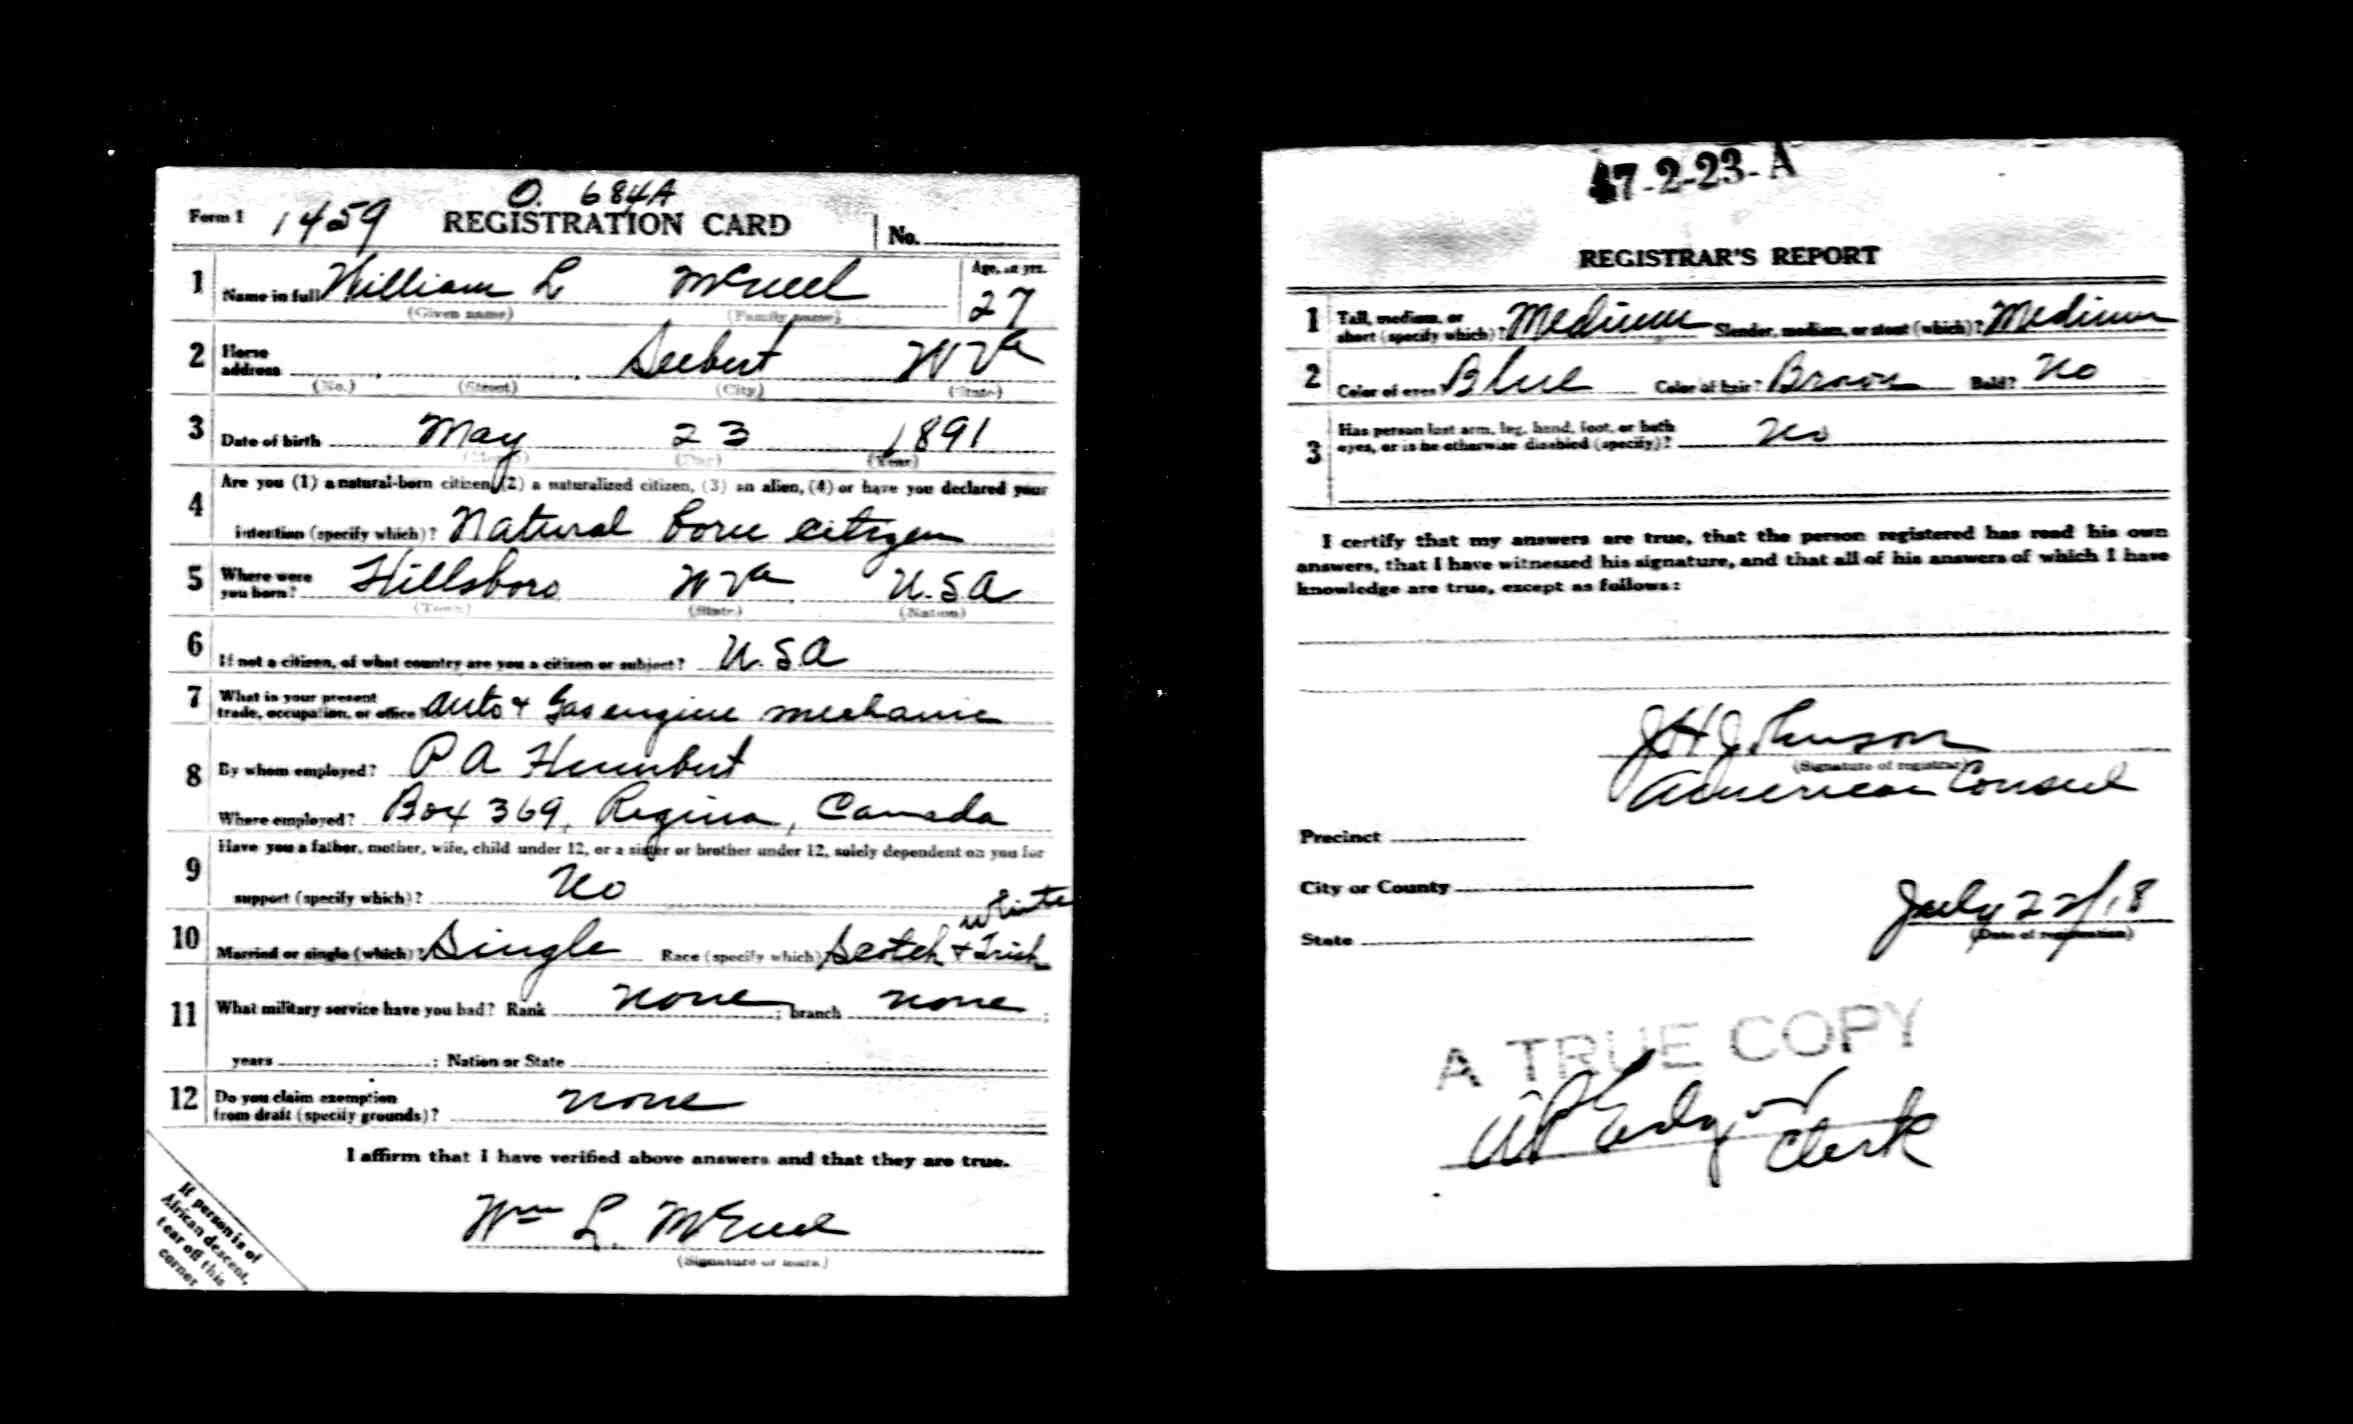 O. 684A
Form 1 1459 REGISTRATION CARD No.
1 Name in full William L McNeel Age, in yrs. 27
(Given name) (Family name)
2 Home address Seebert W Va
(No.) (Street) (City) (State)
3 Date of birth May 23 1891
(Month) (Day) (Year)
4 Are you (1) a natural-born citizen, (2) a naturalized citizen, (3) an alien, (4) or have you declared your
intention (specify which)? Natural born citizen
5 Where were you born? Hillsboro W Va U.S.A
(Town) (State) (Nation)
6 If not a citizen, of what country are you a citizen or subject? U.S.A
7 What is your present
trade, occupation, or office? Auto & Gas engine mechanic
8 By whom employed? P A Humbert
Where employed? Box 369, Regina, Canada
9 Have you a father, mother, wife, child under 12, or a sister or brother under 12, solely dependent on you for
support (specify which)? No
White
10 Married or single (which)? Single Race (specify which)? Scotch & Irish
11 What military service have you had? Rank none ; branch none ;
years ; Nation or State
12 Do you claim exemption
from draft (specify grounds)? none
I affirm that I have verified above answers and that they are true.
Wm L. McNeel
(Signature or mark)
If person is of
African descent,
tear off this
corner
47-2-23-A
REGISTRAR'S REPORT
1 Tall, medium, or
short (specify which)? Medium Slender, medium, or stout (which)? Medium
2 Color of eyes? Blue Color of hair? Brown Bald? No
3 Has person lost arm, leg, hand, foot, or both
eyes, or is he otherwise disabled (specify)? No
I certify that my answers are true, that the person registered has read his own
answers, that I have witnessed his signature, and that all of his answers of which I have
knowledge are true, except as follows:
J H Johnson
(Signature of registrar)
American Consul
Precinct
City or County
July 22/18
State (Date of registration)
A TRUE COPY
Clerk